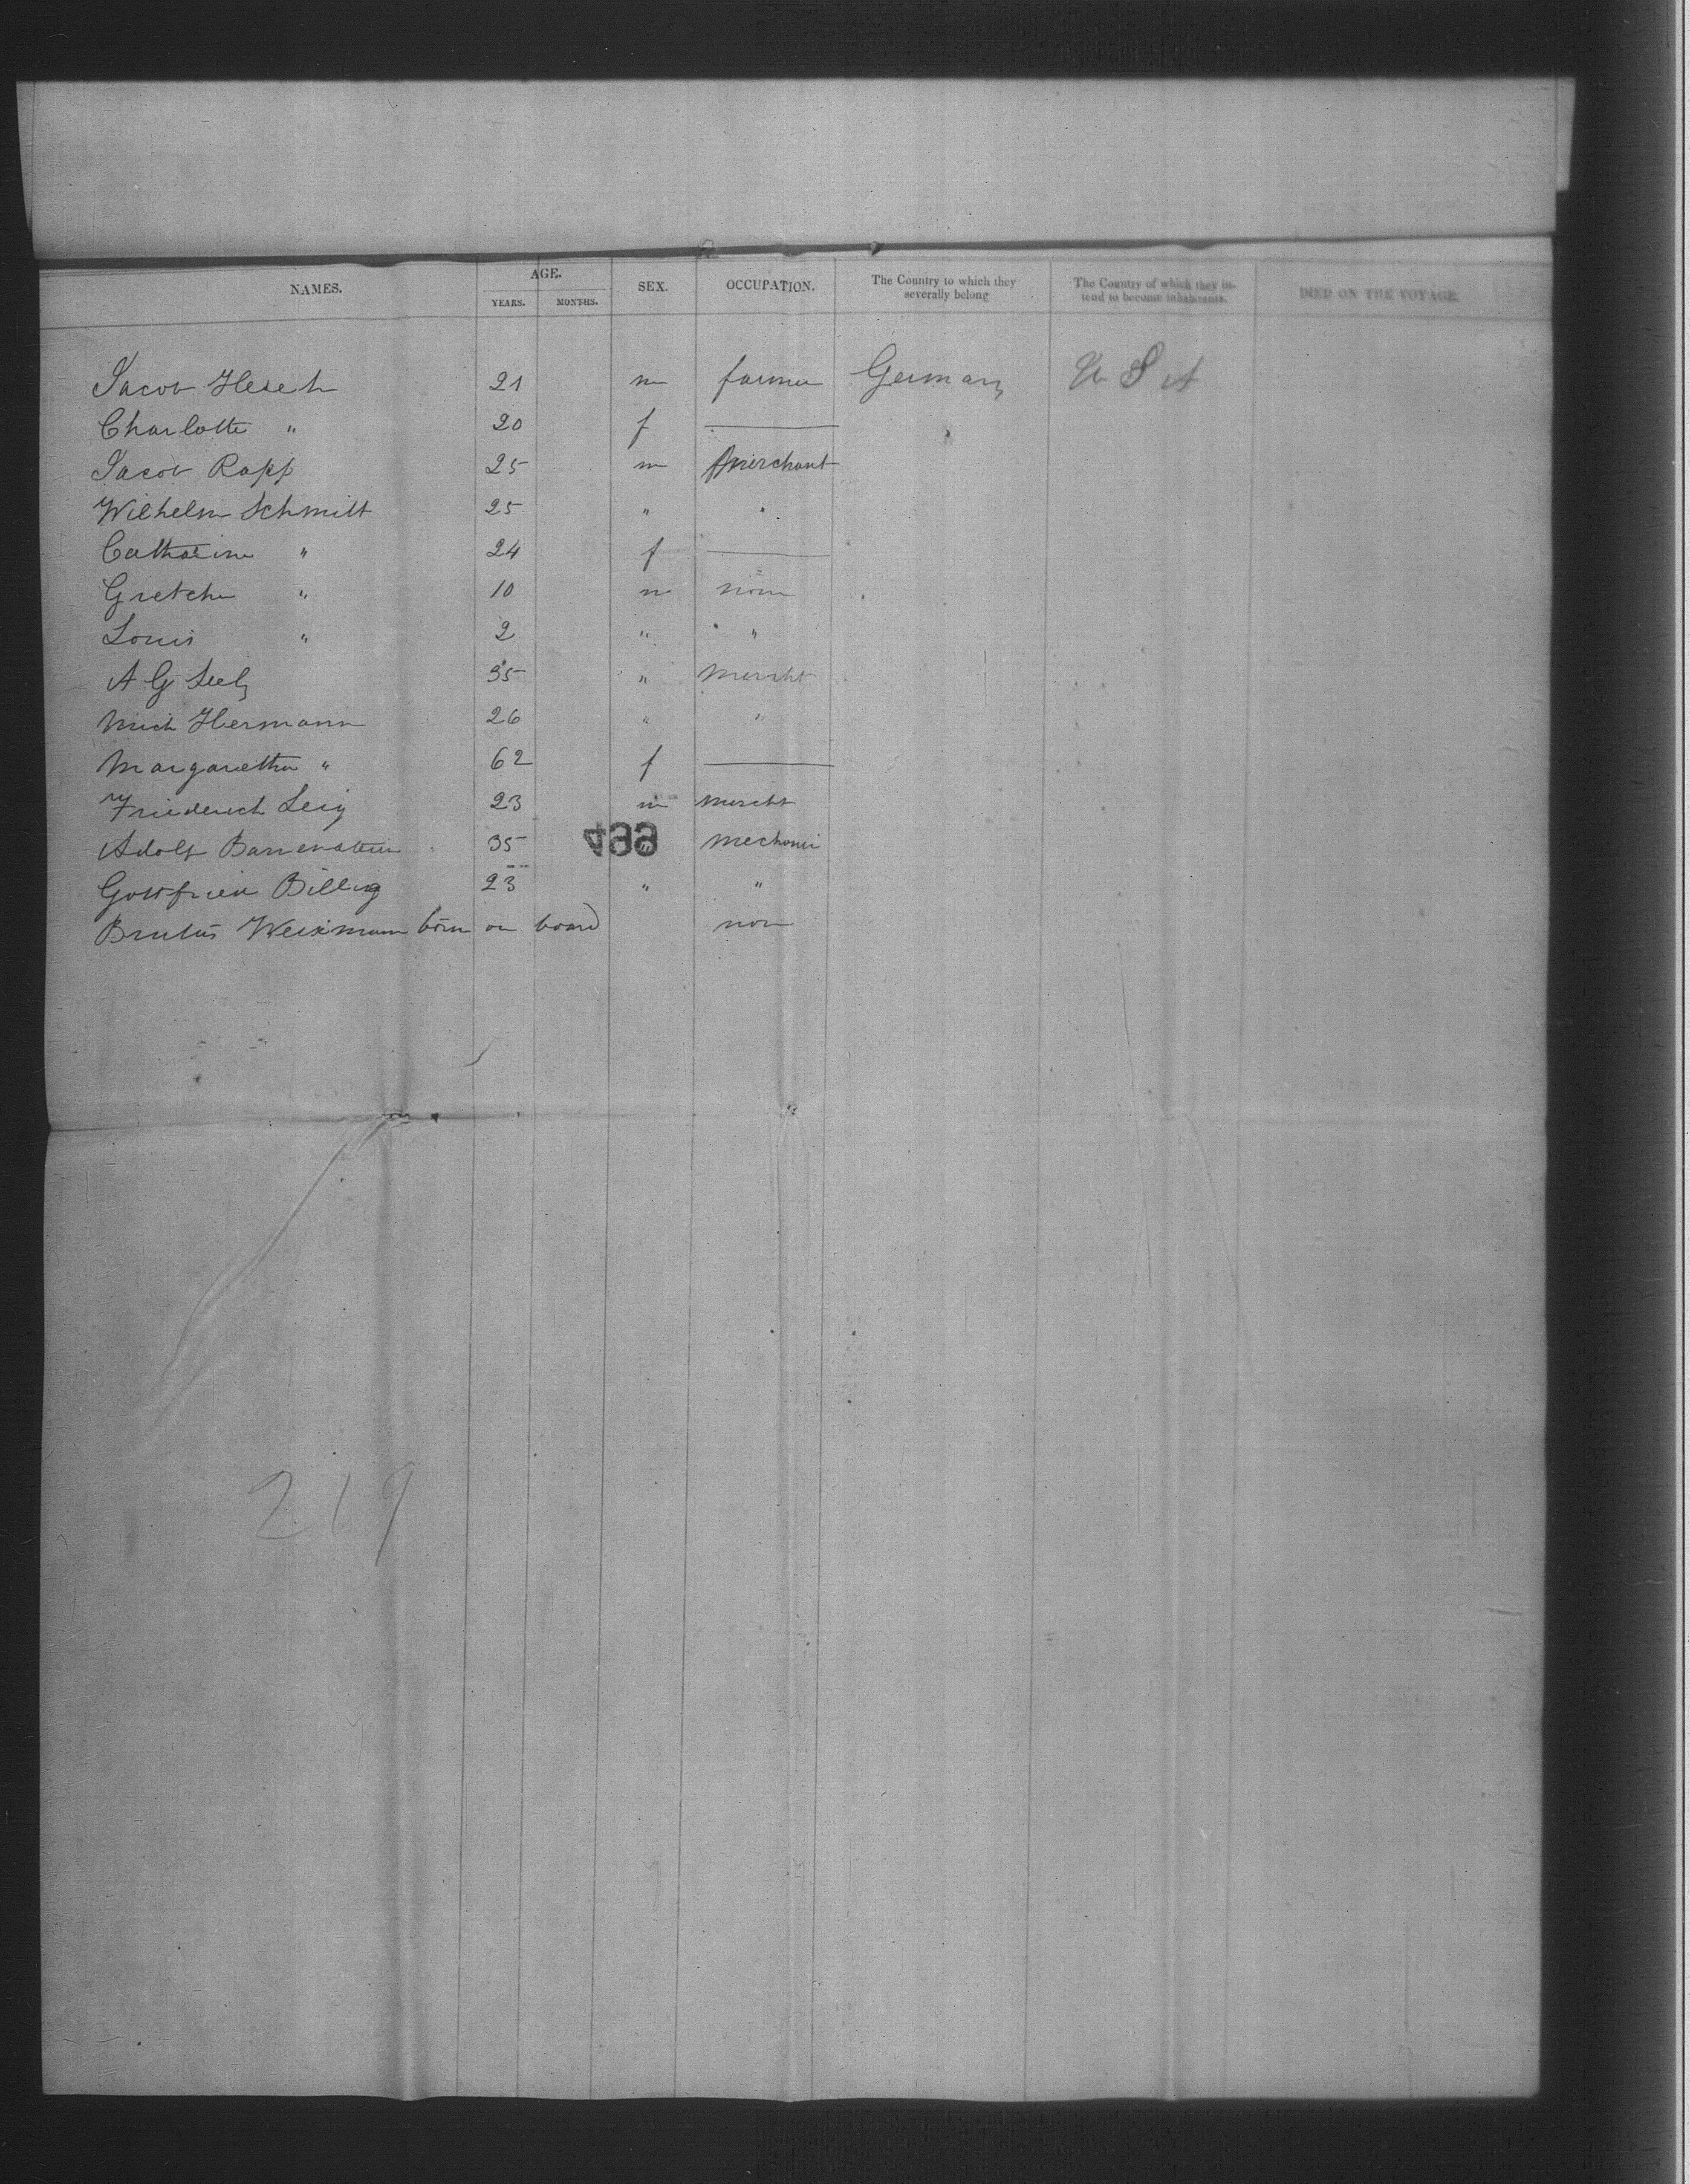 NAMES. AGE. YEARS. MONTHS. SEX. OCCUPATION. The Country to which they severally belong The Country of which they intend to become inhabitants. DIED ON THE VOYAGE.
Jacob 21 m farmer Germany U S A
Charlotte " 20 f —
Jacob Rapp 25 m Merchant
Wilhelm Schmitt 25 " "
Catharine " 24 f —
Gretchen " 10 m none
Louis " 2 " "
A G 35 " Mercht
Mich Hermann 26 " "
Margaretha " 62 f —
Friederich 23 m Mercht
Adolf 35 " Mechanic
499
Gottfried Billig 23 " "
Brutus Weixmann born on board non
219